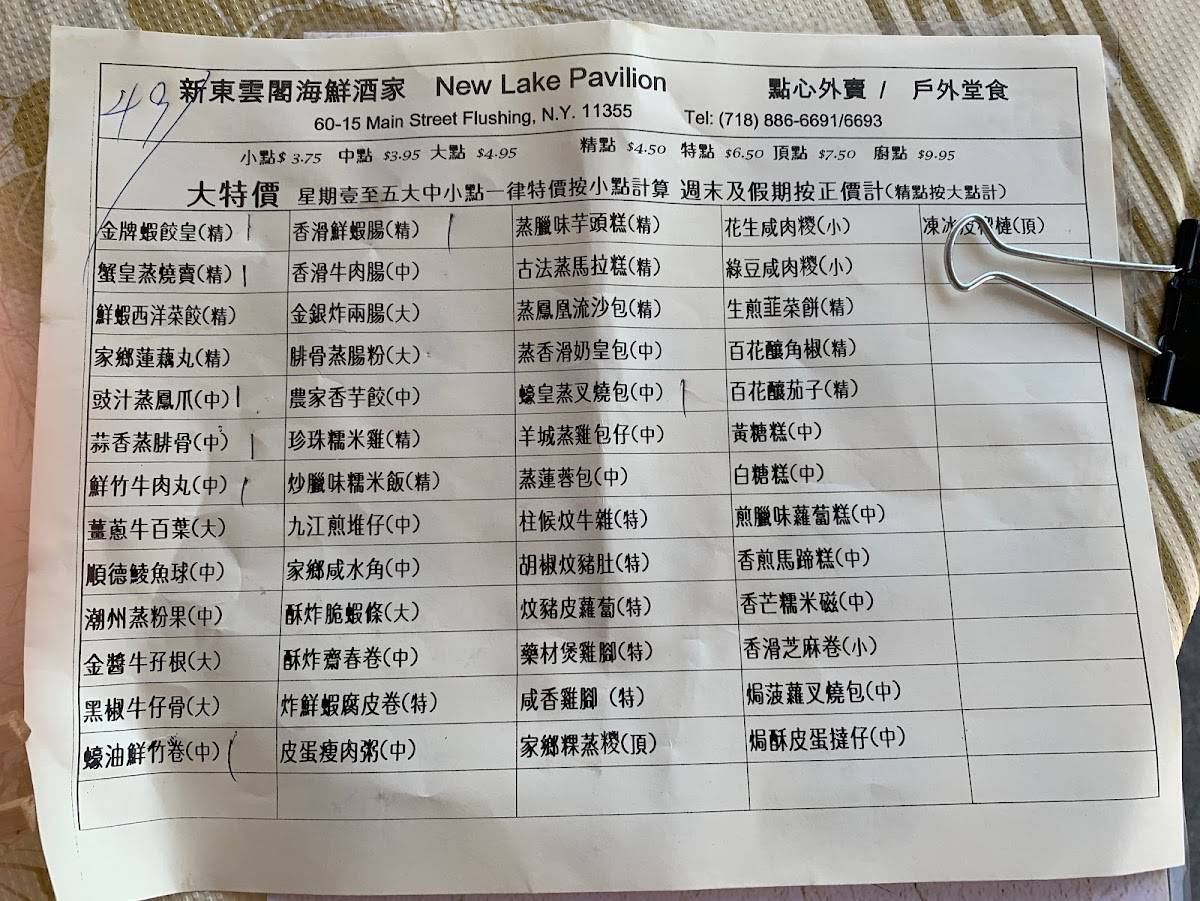 49
新東雲閣海鮮酒家 New Lake Pavilion 點心外賣 / 戶外堂食
60-15 Main Street Flushing, N.Y. 11355 Tel: (718) 886-6691/6693
小點$ 3.75 中點 $3.95 大點 $4.95 精點 $4.50 特點 $6.50 頂點 $7.50 廚點 $9.95
大特價 星期壹至五大中小點一律特價按小點計算 週末及假期按正價計(精點按大點計)
金牌蝦餃皇(精) | 香滑鮮蝦腸(精) | 蒸臘味芋頭糕(精) 花生咸肉糭(小) 凍冰皮榴槤(頂)
蟹皇蒸燒賣(精) | 香滑牛肉腸(中) 古法蒸馬拉糕(精) 綠豆咸肉糭(小)
鮮蝦西洋菜餃(精) 金銀炸兩腸(大) 蒸鳳凰流沙包(精) 生煎韮菜餅(精)
家鄉蓮藕丸(精) 腓骨蒸腸粉(大) 蒸香滑奶皇包(中) 百花釀角椒(精)
豉汁蒸鳳爪(中) | 農家香芋餃(中) 蠔皇蒸叉燒包(中) | 百花釀茄子(精)
蒜香蒸腓骨(中) | 珍珠糯米雞(精) 羊城蒸雞包仔(中) 黃糖糕(中)
鮮竹牛肉丸(中) | 炒臘味糯米飯(精) 蒸蓮蓉包(中) 白糖糕(中)
薑蔥牛百葉(大) 九江煎堆仔(中) 柱候炆牛雜(特) 煎臘味蘿蔔糕(中)
順德鯪魚球(中) 家鄉咸水角(中) 胡椒炆豬肚(特) 香煎馬蹄糕(中)
潮州蒸粉果(中) 酥炸脆蝦條(大) 炆豬皮蘿蔔(特) 香芒糯米磁(中)
金醬牛孖根(大) 酥炸齋春卷(中) 藥材煲雞腳(特) 香滑芝麻卷(小)
黑椒牛仔骨(大) 炸鮮蝦腐皮卷(特) 咸香雞腳 (特) 焗菠蘿叉燒包(中)
蠔油鮮竹卷(中) | 皮蛋瘦肉粥(中) 家鄉粿蒸糭(頂) 焗酥皮蛋撻仔(中)